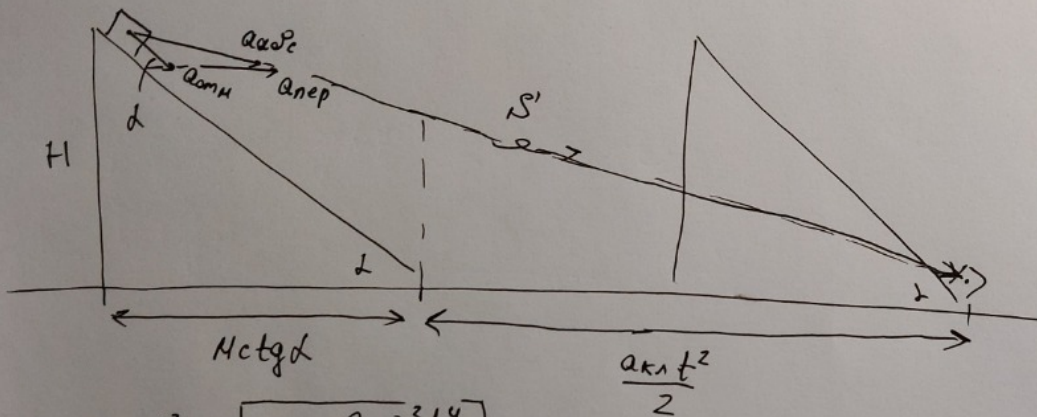 aабс
aотн
aпер
α
H
S'
α
α
Hctgα
aкл t²
2
2